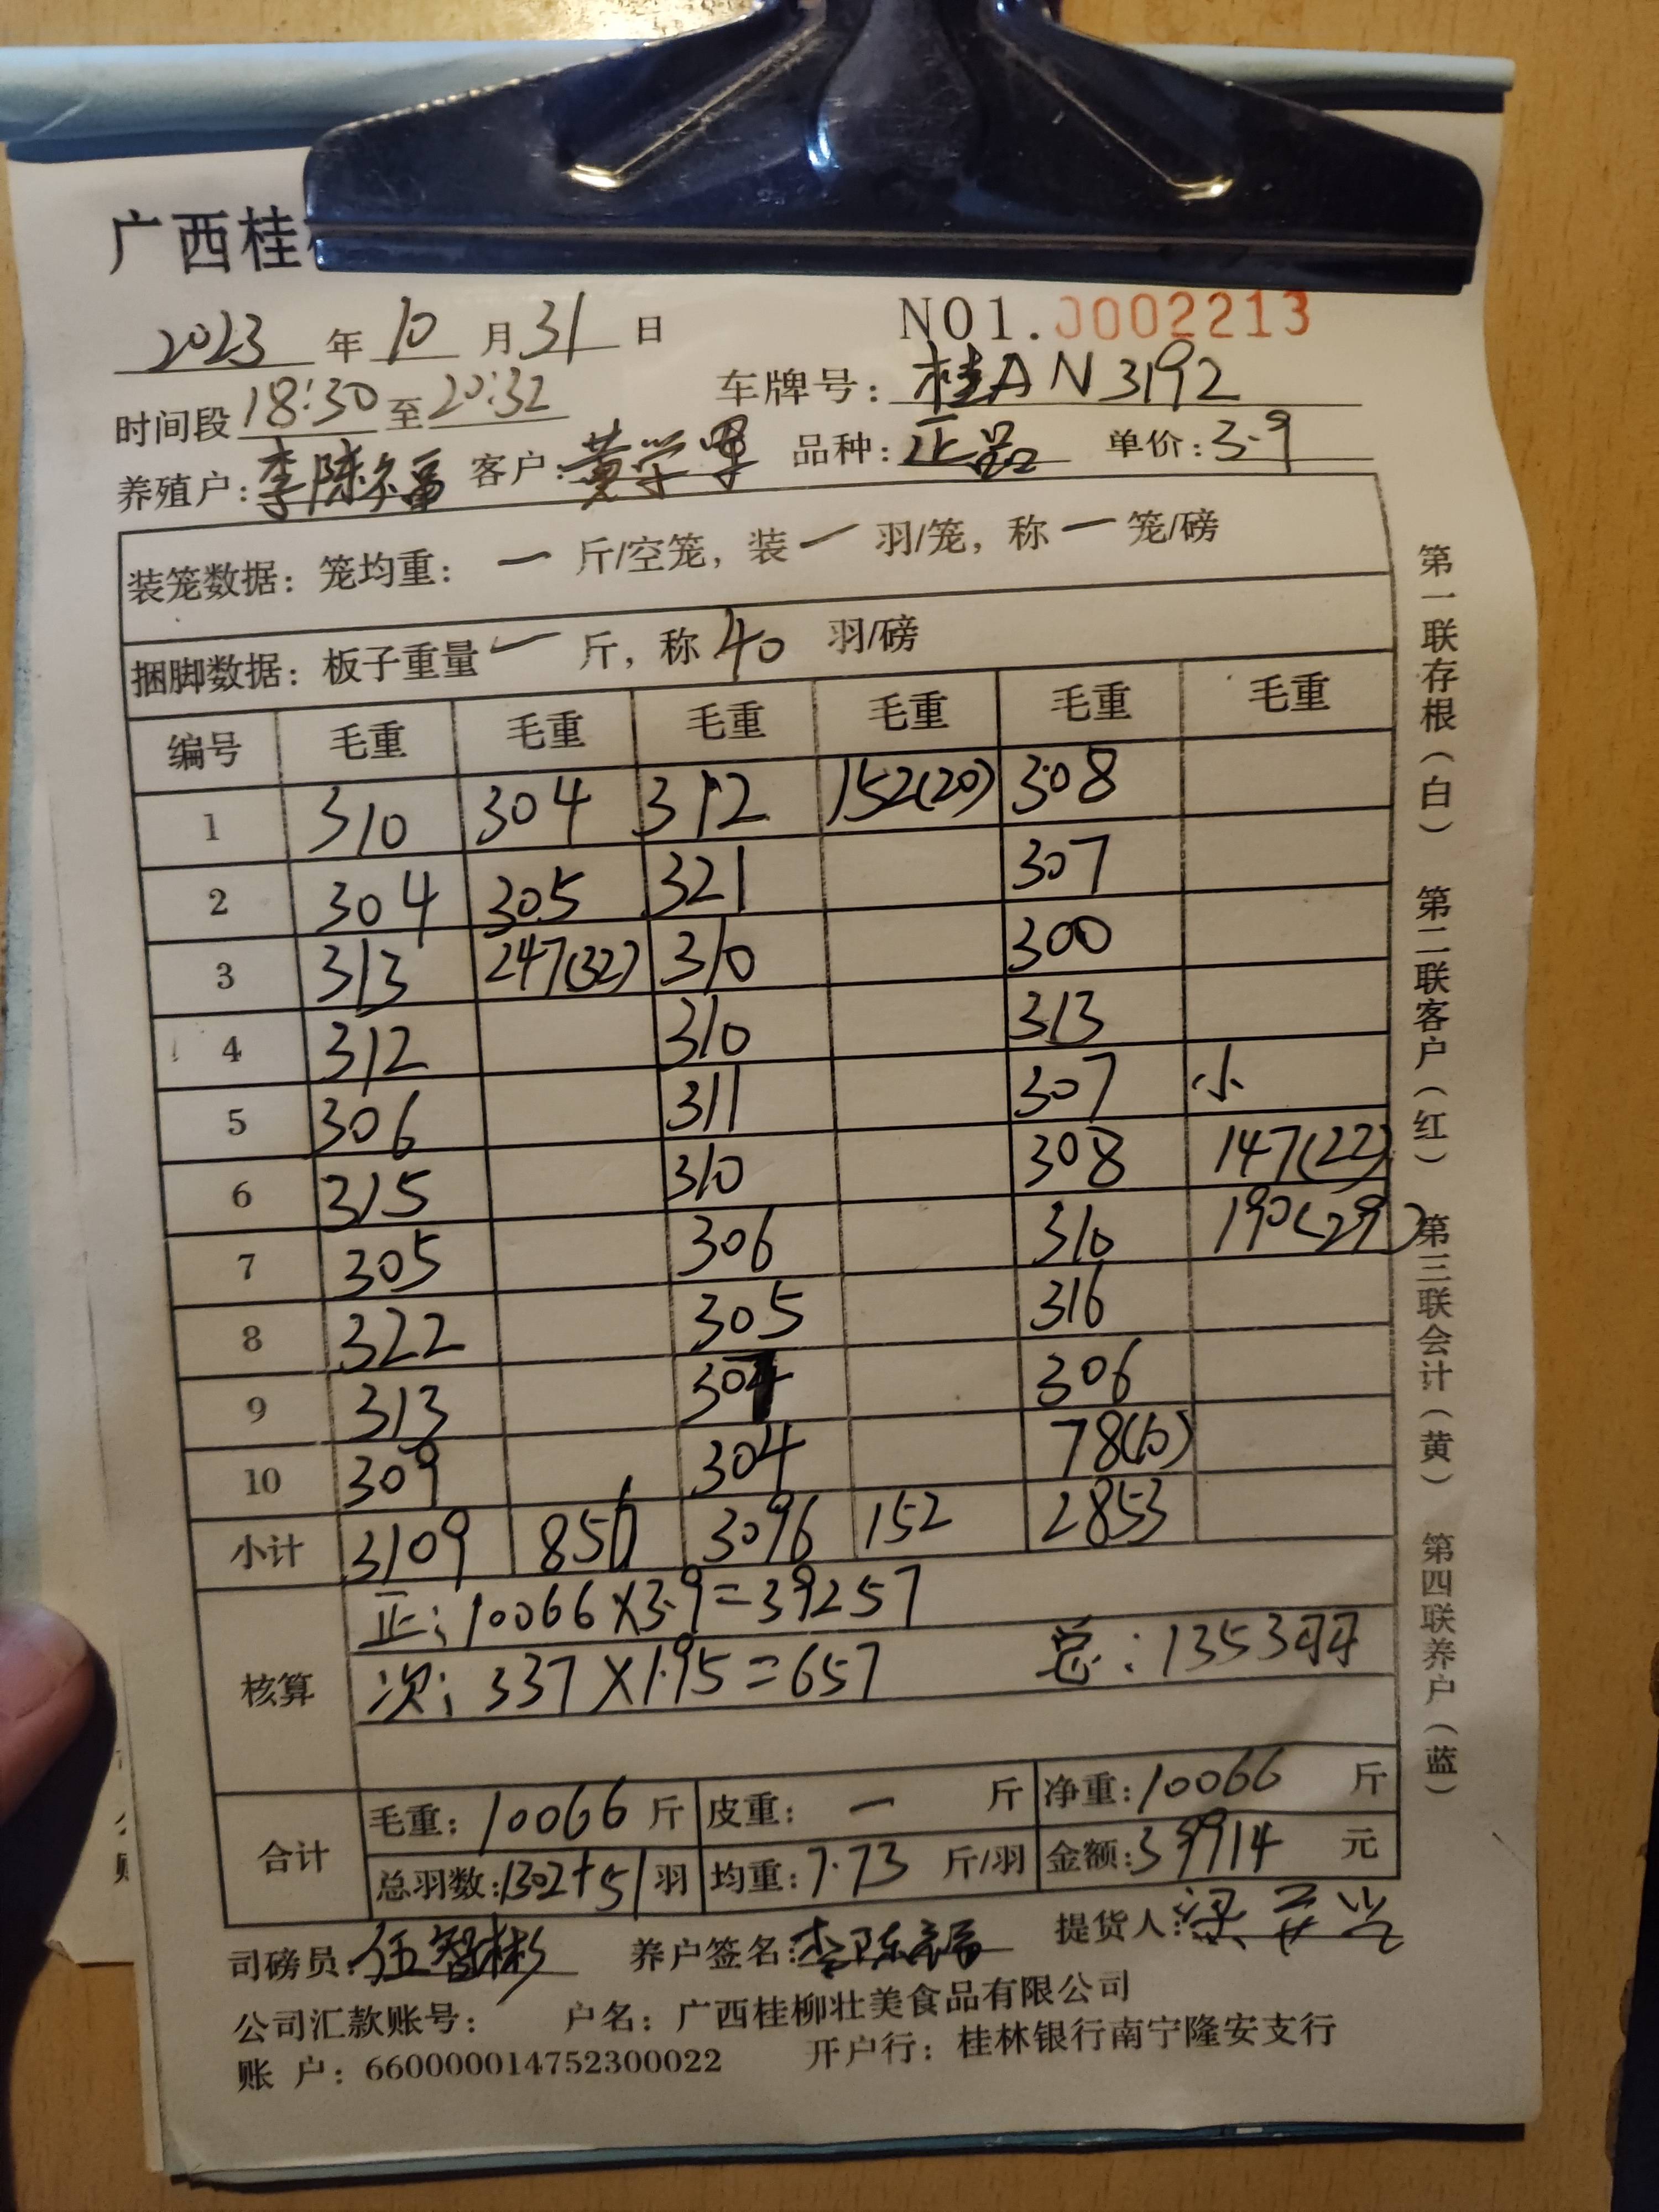 广西桂
2023 年 10 月 31 日 NO1.0002213
时间段 18:30 至 20:32 车牌号: 桂AN3192
养殖户: 李陈福 客户: 黄学 品种: 正品 单价: 3.9
装笼数据: 笼均重: 一 斤/空笼, 装 一 羽/笼, 称 一 笼/磅
捆脚数据: 板子重量 一 斤, 称 40 羽/磅
编号 毛重 毛重 毛重 毛重 毛重 毛重
1 310 304 312 152(20) 308
2 304 305 321 307
3 313 247(32) 310 300
4 312 310 313
5 306 311 307 小
6 315 310 308 147(22)
7 305 306 310 190(29)
8 322 305 316
9 313 307 306
10 309 304 78(10)
小计 3109 856 3096 152 2853
核算
正: 10066×3.9=39257
次: 337×1.95=657 总: 1353羽
合计
毛重: 10066 斤 皮重: 一 斤 净重: 10066 斤
总羽数: 1302+51 羽 均重: 7.73 斤/羽 金额: 39914 元
司磅员: 伍智彬 养户签名: 李陈福 提货人: 梁
公司汇款账号: 户名: 广西桂柳壮美食品有限公司
账 户: 660000014752300022 开户行: 桂林银行南宁隆安支行
第一联存根(白) 第二联客户(红) 第三联会计(黄) 第四联养户(蓝)